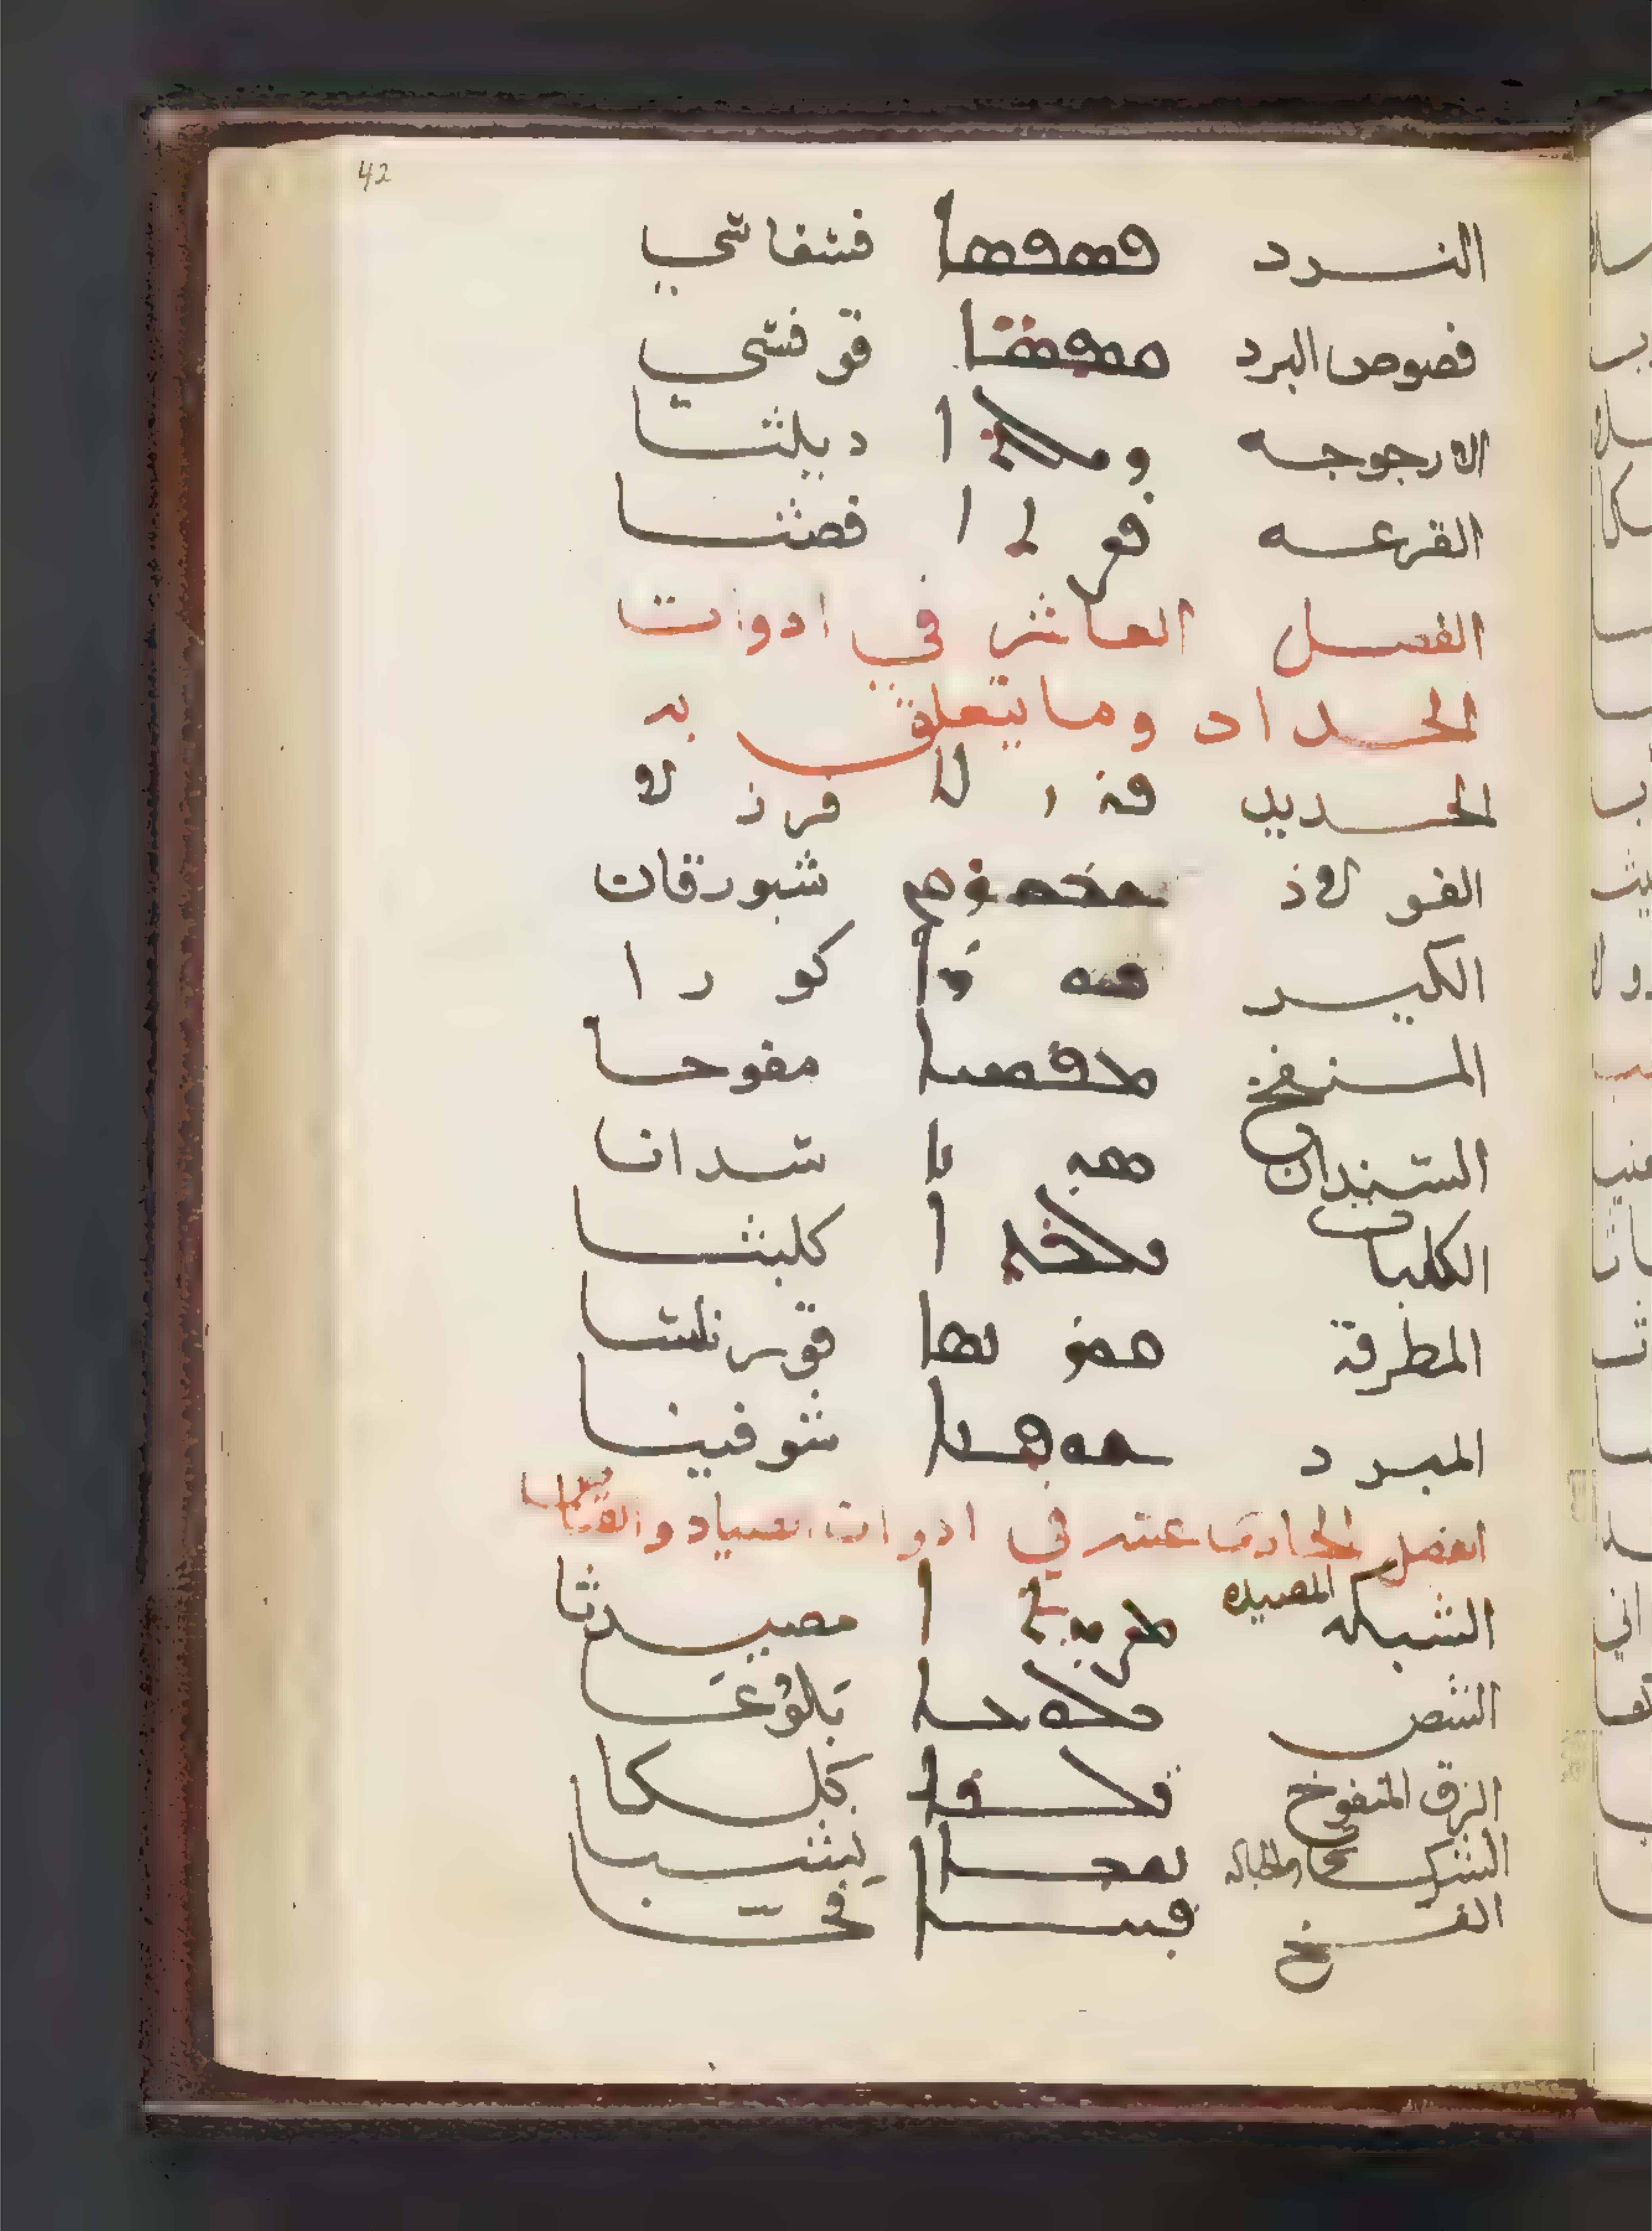 42
النرد ܦܣܦܣܐ فسفاسي
فصوص البرد ܩܘܦܣ̈ܐ قوفسي
الارجوجه ܕܝܠܬܐ ديلثا
القرعه ܦܨܬܐ فصثا
الفصل العاشر في ادوات
الحداد وما يتعلق به
الحديد ܦܪܙܠܐ فرزلا
الفولاذ شبورقان
الكير ܟܘܪܐ كورا
المنفخ ܡܦܘܚܐ مفوحا
السندان ܣܕܢܐ سدانا
الكلبات ܟܠܒܬܐ كلبثا
المطرقة ܩܘܪܢܣܐ قورنسا
المبرد ܫܘܦܝܢܐ شوفينا
الفصل الحادى عشر في ادوات الصياد والقناص
الشبكه المصيده ܡܨܝܕܬܐ مصيدثا
الشص ܒܠܘܥܐ بلوعا
الزق المنفوخ
الشرك والحباله ܢܫܒܐ نشبا
الفخ ܦܚܐ فحا